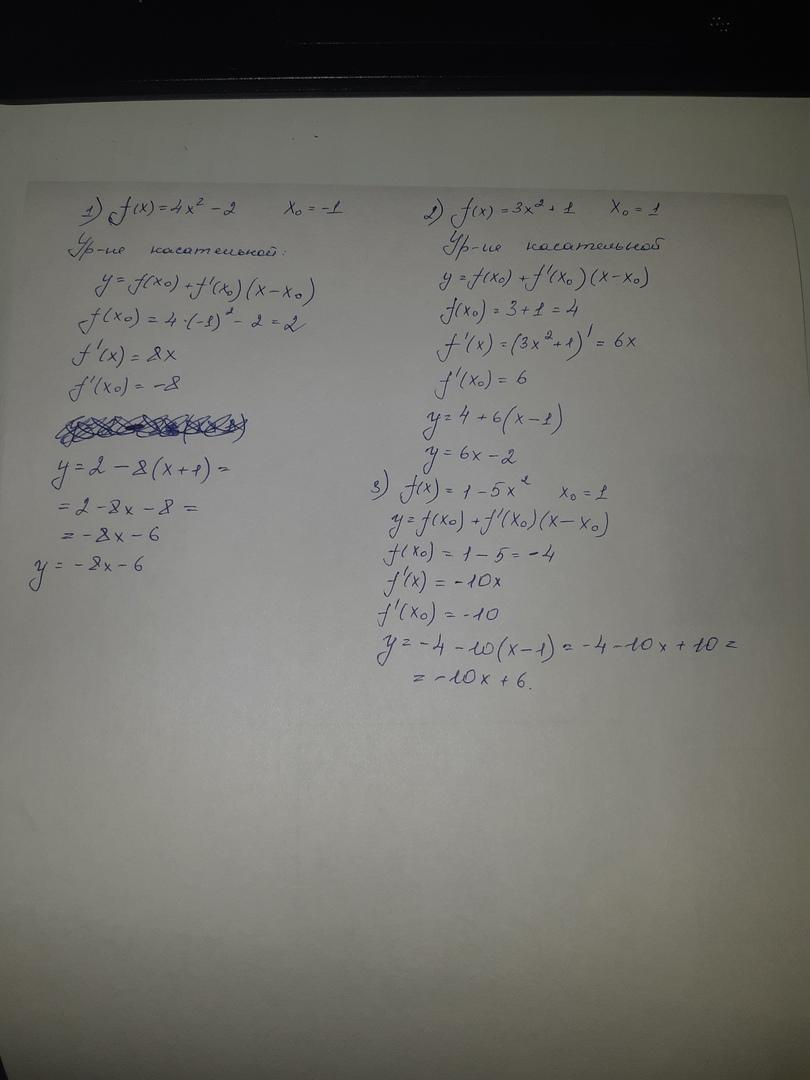 1) f(x) = 4x² - 2 x₀ = -1
Ур-ие касательной:
y = f(x₀) + f'(x₀)(x - x₀)
f(x₀) = 4·(-1)² - 2 = 2
f'(x) = 8x
f'(x₀) = -8
y = 2 - 8(x+1) =
= 2 - 8x - 8 =
= -8x - 6
y = -8x - 6
2) f(x) = 3x² + 1 x₀ = 1
Ур-ие касательной
y = f(x₀) + f'(x₀)(x - x₀)
f(x₀) = 3 + 1 = 4
f'(x) = (3x² + 1)' = 6x
f'(x₀) = 6
y = 4 + 6(x - 1)
y = 6x - 2
3) f(x) = 1 - 5x² x₀ = 1
y = f(x₀) + f'(x₀)(x - x₀)
f(x₀) = 1 - 5 = -4
f'(x) = -10x
f'(x₀) = -10
y = -4 - 10(x - 1) = -4 - 10x + 10 =
= -10x + 6.